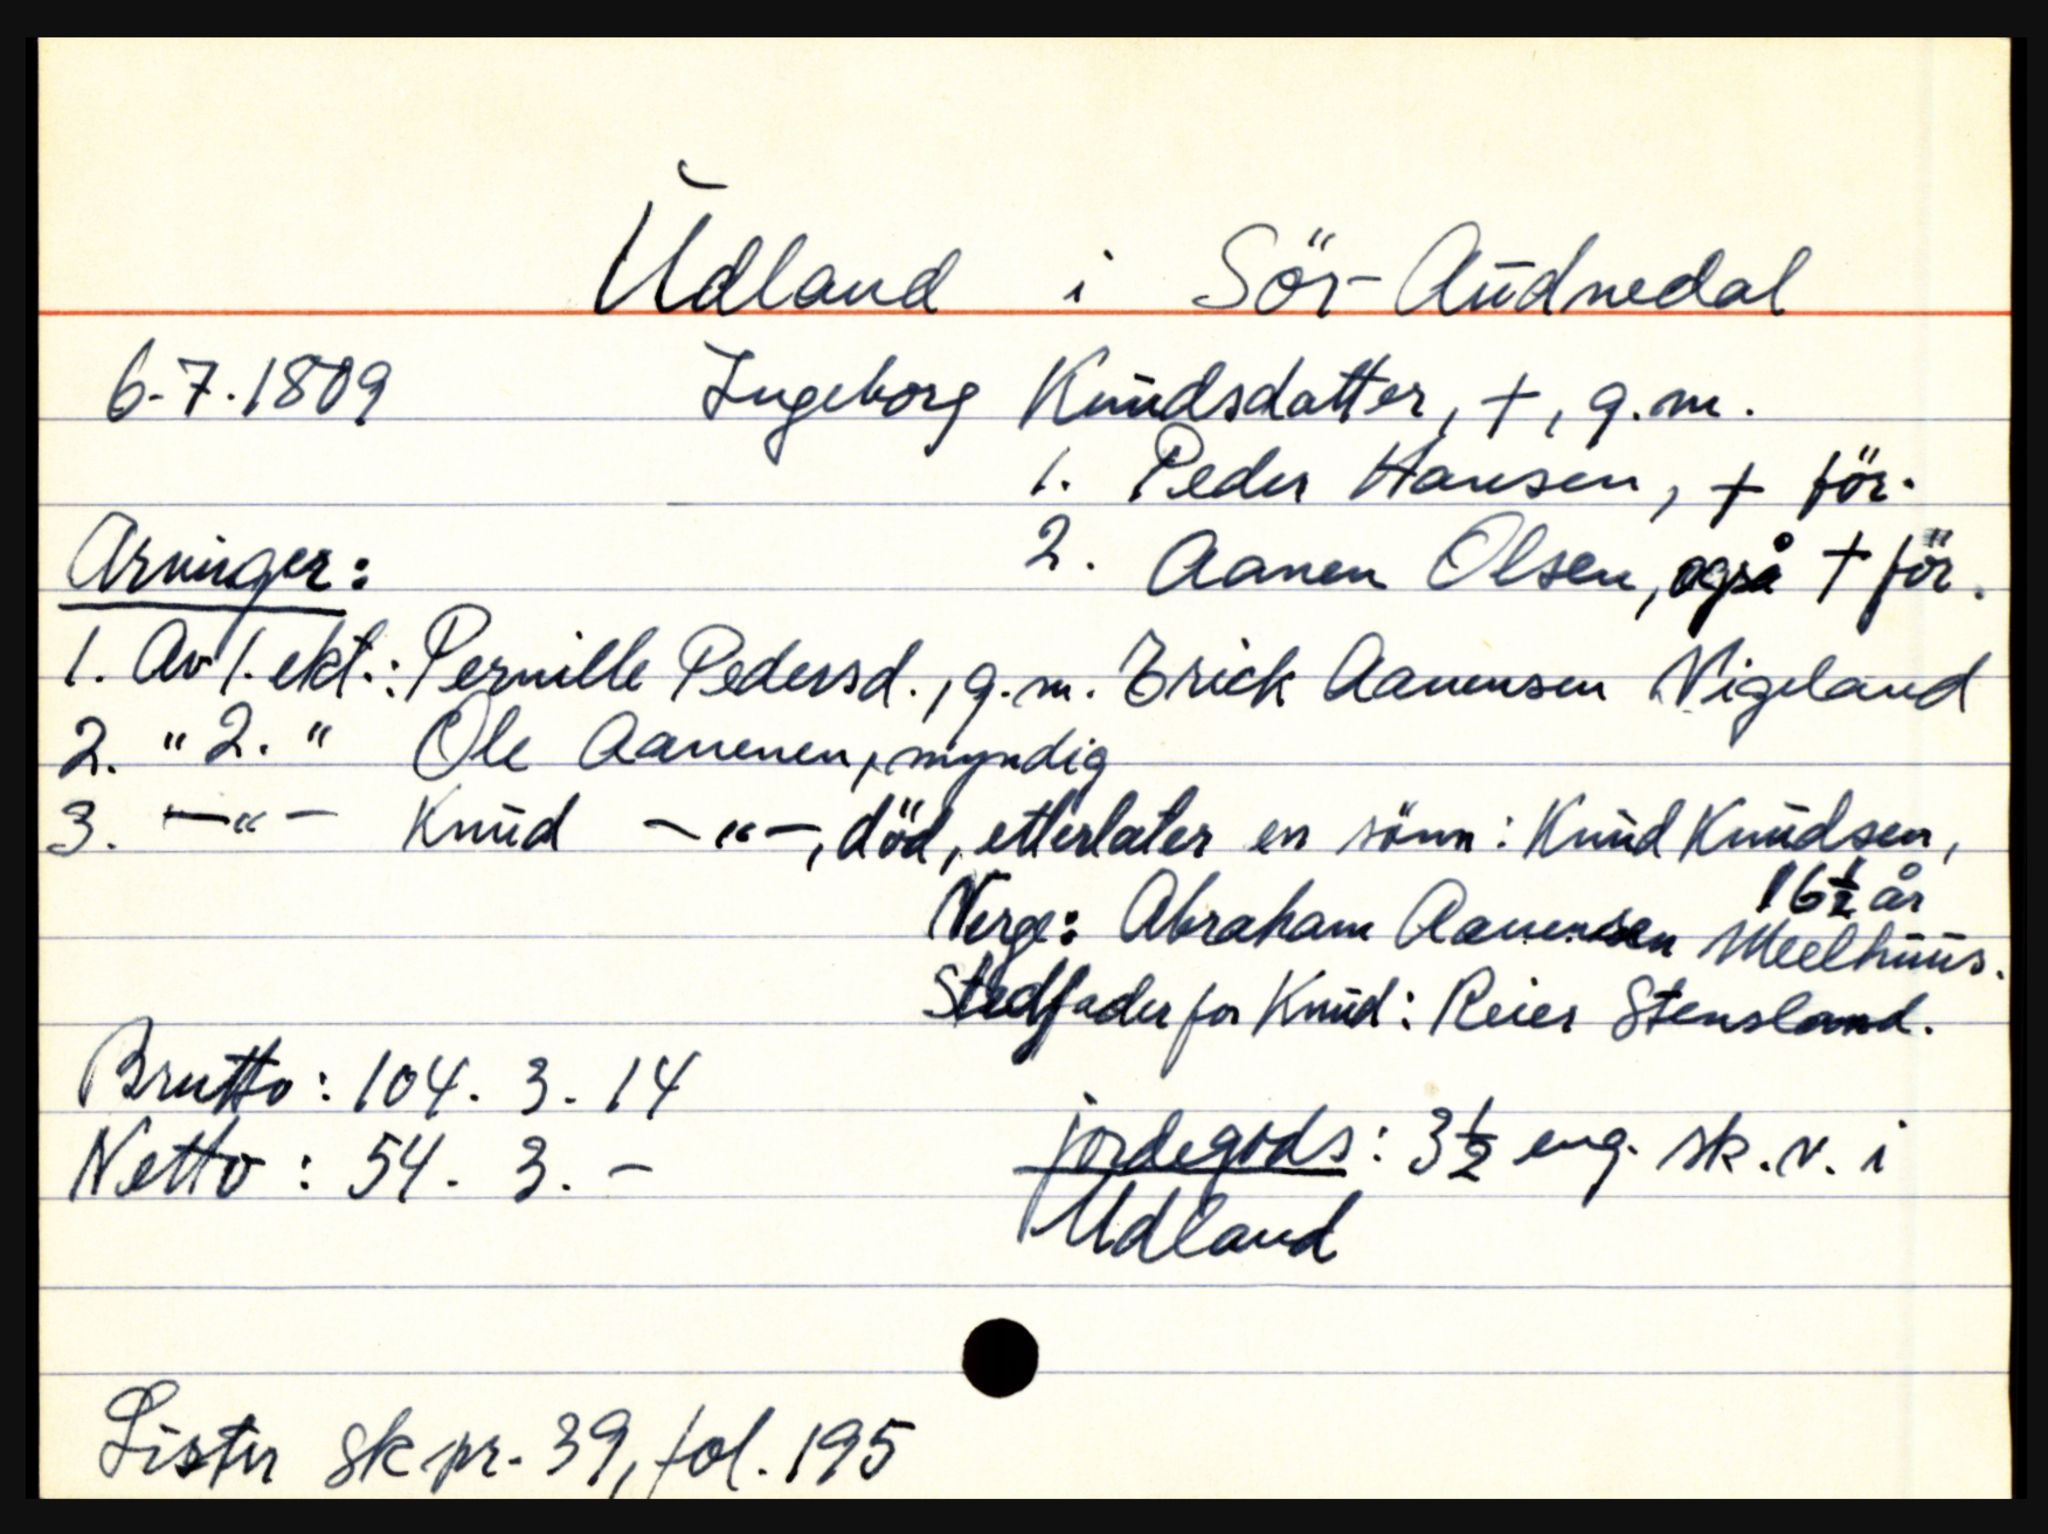 Udland i Sör-Audnedal
6-7.1809 Ingeborg Knudsdatter, +, g.m.
1. Peder Hansen, + för.
Arvinger: 2. Aanen Olsen, også + för.
1. Av 1. ekt.: Pernille Pedersd., g.m. Erick Aanensen Vigeland
2. " 2. " Ole Aanenen, myndig
3. -"- Knud -"-, död, etterlater en sönn: Knud Knudsen,
16½ år
Verge: Abraham Aanensen Meelhuus.
Stedfader for Knud: Reier Stensland.
Brutto: 104. 3. 14
Netto: 54. 3. - jordegods: 3½ eng. sk. v. i
Udland
Lister sk pr. 39, fol. 195